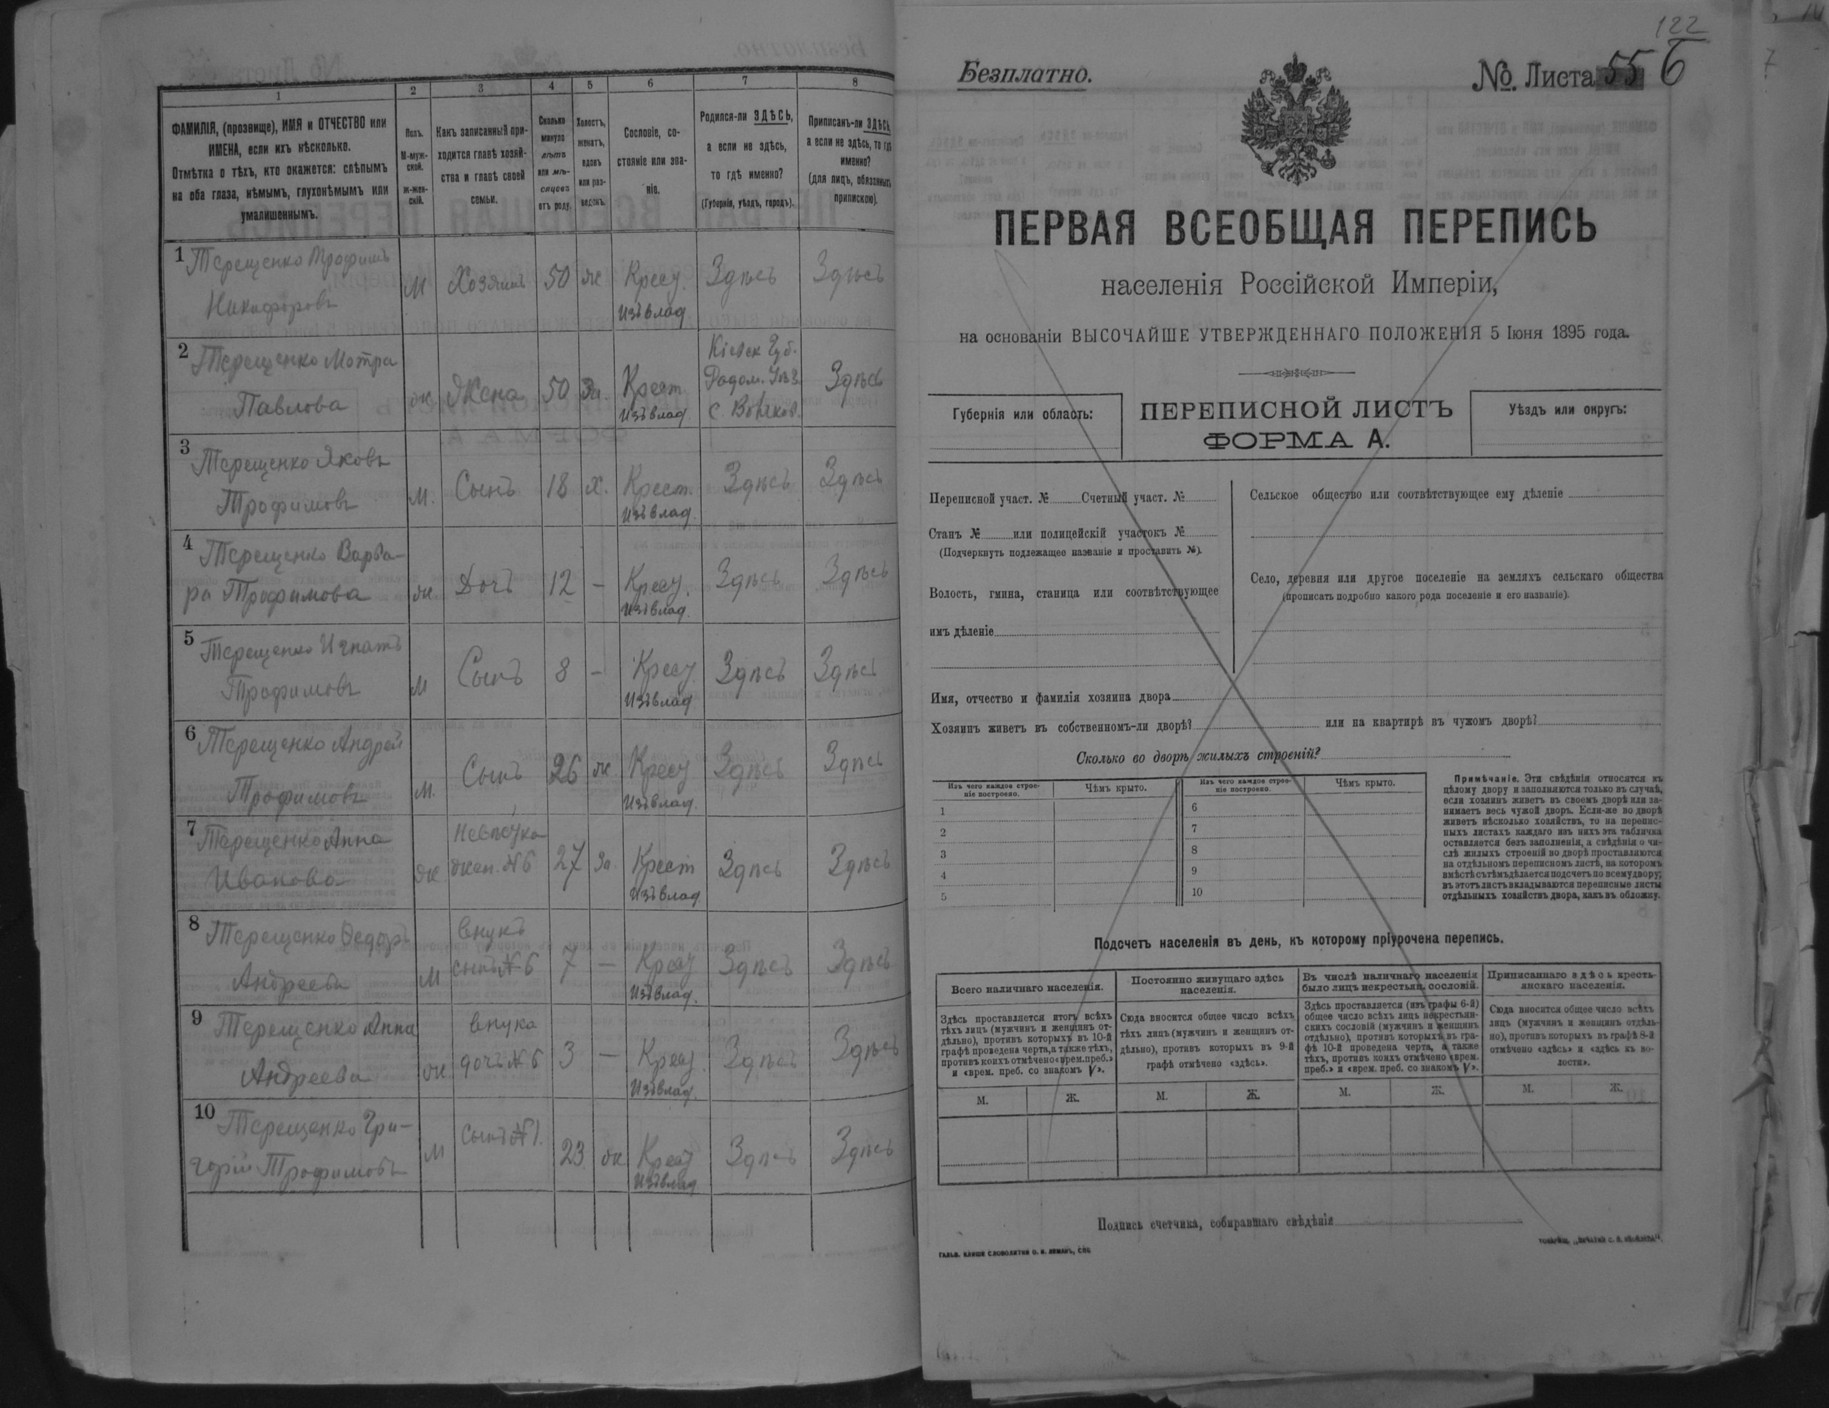 1
2
3
4
5
6
7
8
ФАМИЛІЯ, (прозвище), ИМЯ и ОТЧЕСТВО или
ИМЕНА, если ихъ нѣсколько.
Отмѣтка о тѣхъ, кто окажется: слѣпымъ
на оба глаза, нѣмымъ, глухонѣмымъ или
умалишеннымъ.
Полъ.
М-муж-
ской.
Ж-жен-
скій.
Какъ записанный при-
ходится главѣ хозяй-
ства и главѣ своей
семьи.
Сколько
минуло
лѣтъ
или мѣ-
сяцевъ
отъ роду.
Холостъ,
женатъ,
вдовъ
или раз-
веденъ.
Сословіе, со-
стояніе или зва-
ніе.
Родился-ли ЗДѢСЬ,
а если не здѣсь,
то гдѣ именно?
(Губернія, уѣздъ, городъ).
Приписанъ-ли ЗДѢСЬ,
а если не здѣсь, то гдѣ
именно?
(для лицъ, обязанныхъ
припискою).
1 Терещенко Трофимъ
Никифоровъ
М Хозяинъ 50 ж Крест.
изъ влад.
Здѣсь Здѣсь
2 Терещенко Мотра
Павлова
ж Жена 50 За. Крест.
изъ влад.
Кіевск Губ.
Радом. Уѣз.
с.
Здѣсь
3 Терещенко Яковъ
Трофимовъ
М. Сынъ 18 х. Крест.
изъ влад.
Здѣсь Здѣсь
4 Терещенко Варва-
ра Трофимова
ж Дочь 12 - Крест.
изъ влад.
Здѣсь Здѣсь
5 Терещенко Игнатъ
Трофимовъ
М Сынъ 8 - Крест.
изъ влад
Здѣсь Здѣсь
6 Терещенко Андрей
Трофимовъ
М. Сынъ 26 ж Крест
изъ влад.
Здѣсь Здѣсь
7 Терещенко Анна
Иванова
ж Невѣстка
жен. №6
27 За. Крест
изъ влад
Здѣсь Здѣсь
8 Терещенко Федоръ
Андреевъ
М внукъ
сынъ №6
7 - Крест
изъ влад.
Здѣсь Здѣсь
9 Терещенко Анна
Андреева
ж внука
дочь №6
3 - Крест.
изъ влад.
Здѣсь Здѣсь
10 Терещенко Гри-
горій Трофимовъ
М Сынъ №1.
23 ж Крест
изъ влад
Здѣсь Здѣсь
122
Безплатно.
№. Листа 55 б
ПЕРВАЯ ВСЕОБЩАЯ ПЕРЕПИСЬ
населенія Россійской Имперіи,
на основаніи ВЫСОЧАЙШЕ УТВЕРЖДЕННАГО ПОЛОЖЕНІЯ 5 Іюня 1895 года.
Губернія или область:
ПЕРЕПИСНОЙ ЛИСТЪ
ФОРМА А.
Уѣздъ или округъ:
Переписной участ. № Счетный участ. №
Станъ № или полицейскій участокъ №
(Подчеркнуть подлежащее названіе и проставить №).
Волость, гмина, станица или соотвѣтствующее
имъ дѣленіе
Сельское общество или соотвѣтствующее ему дѣленіе
Село, деревня или другое поселеніе на земляхъ сельскаго общества
(прописать подробно какого рода поселеніе и его названіе).
Имя, отчество и фамилія хозяина двора
Хозяинъ живетъ въ собственномъ-ли дворѣ? или на квартирѣ въ чужомъ дворѣ?
Сколько во дворѣ жилыхъ строеній?
Изъ чего каждое строе-
ніе построено.
Чѣмъ крыто.
Изъ чего каждое строе-
ніе построено.
Чѣмъ крыто.
1
2
3
4
5
6
7
8
9
10
Примѣчаніе. Эти свѣдѣнія относятся къ
цѣлому двору и заполняются только въ случаѣ,
если хозяинъ живетъ въ своемъ дворѣ или за-
нимаетъ весь чужой дворъ. Если-же во дворѣ
живетъ нѣсколько хозяйствъ, то на перепис-
ныхъ листахъ каждаго изъ нихъ эта табличка
оставляется безъ заполненія, а свѣдѣнія о чи-
слѣ жилыхъ строеній во дворѣ проставляются
на отдѣльномъ переписномъ листѣ, на которомъ
вмѣстѣ съ тѣмъ дѣлается подсчетъ по всему двору;
въ этотъ листъ вкладываются переписные листы
отдѣльныхъ хозяйствъ двора, какъ въ обложку.
Подсчетъ населенія въ день, къ которому пріурочена перепись.
Всего наличнаго населенія.
Постоянно живущаго здѣсь
населенія.
Въ числѣ наличнаго населенія
было лицъ некрестьян. сословій.
Приписаннаго здѣсь кресть-
янскаго населенія.
Здѣсь проставляется итогъ всѣхъ
тѣхъ лицъ (мужчинъ и женщинъ от-
дѣльно), противъ которыхъ въ 10-й
графѣ проведена черта, а также тѣхъ,
противъ коихъ отмѣчено «врем. преб.»
и «врем. преб. со знакомъ V».
Сюда вносится общее число всѣхъ
тѣхъ лицъ (мужчинъ и женщинъ от-
дѣльно), противъ которыхъ въ 9-й
графѣ отмѣчено «здѣсь».
Здѣсь проставляется (изъ графы 6-й)
общее число всѣхъ лицъ некрестьян-
скихъ сословій (мужчинъ и женщинъ
отдѣльно), противъ которыхъ въ гра-
фѣ 10-й проведена черта, а также
тѣхъ, противъ коихъ отмѣчено «врем.
преб.» и «врем. преб. со знакомъ V».
Сюда вносится общее число всѣхъ
лицъ (мужчинъ и женщинъ отдѣль-
но), противъ которыхъ въ графѣ 8-й
отмѣчено «здѣсь» и «здѣсь къ во-
лости».
М. Ж. М. Ж. М. Ж. М. Ж.
Подпись счетчика, собиравшаго свѣдѣнія
ГАЛЬВ. КЛИШЕ СЛОВОЛИТНИ О. И. ЛЕМАНЪ, СПБ.